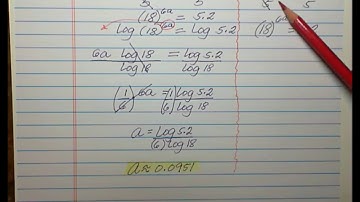 5 5
(18)^6a = 5.2
log (18)^6a = log 5.2
6a log 18 = log 5.2
log 18 log 18
(1/6) 6a = 1 log 5.2
(6) log 18
a = log 5.2
(6) log 18
a ≈ 0.0951
5 5
(18) = 2